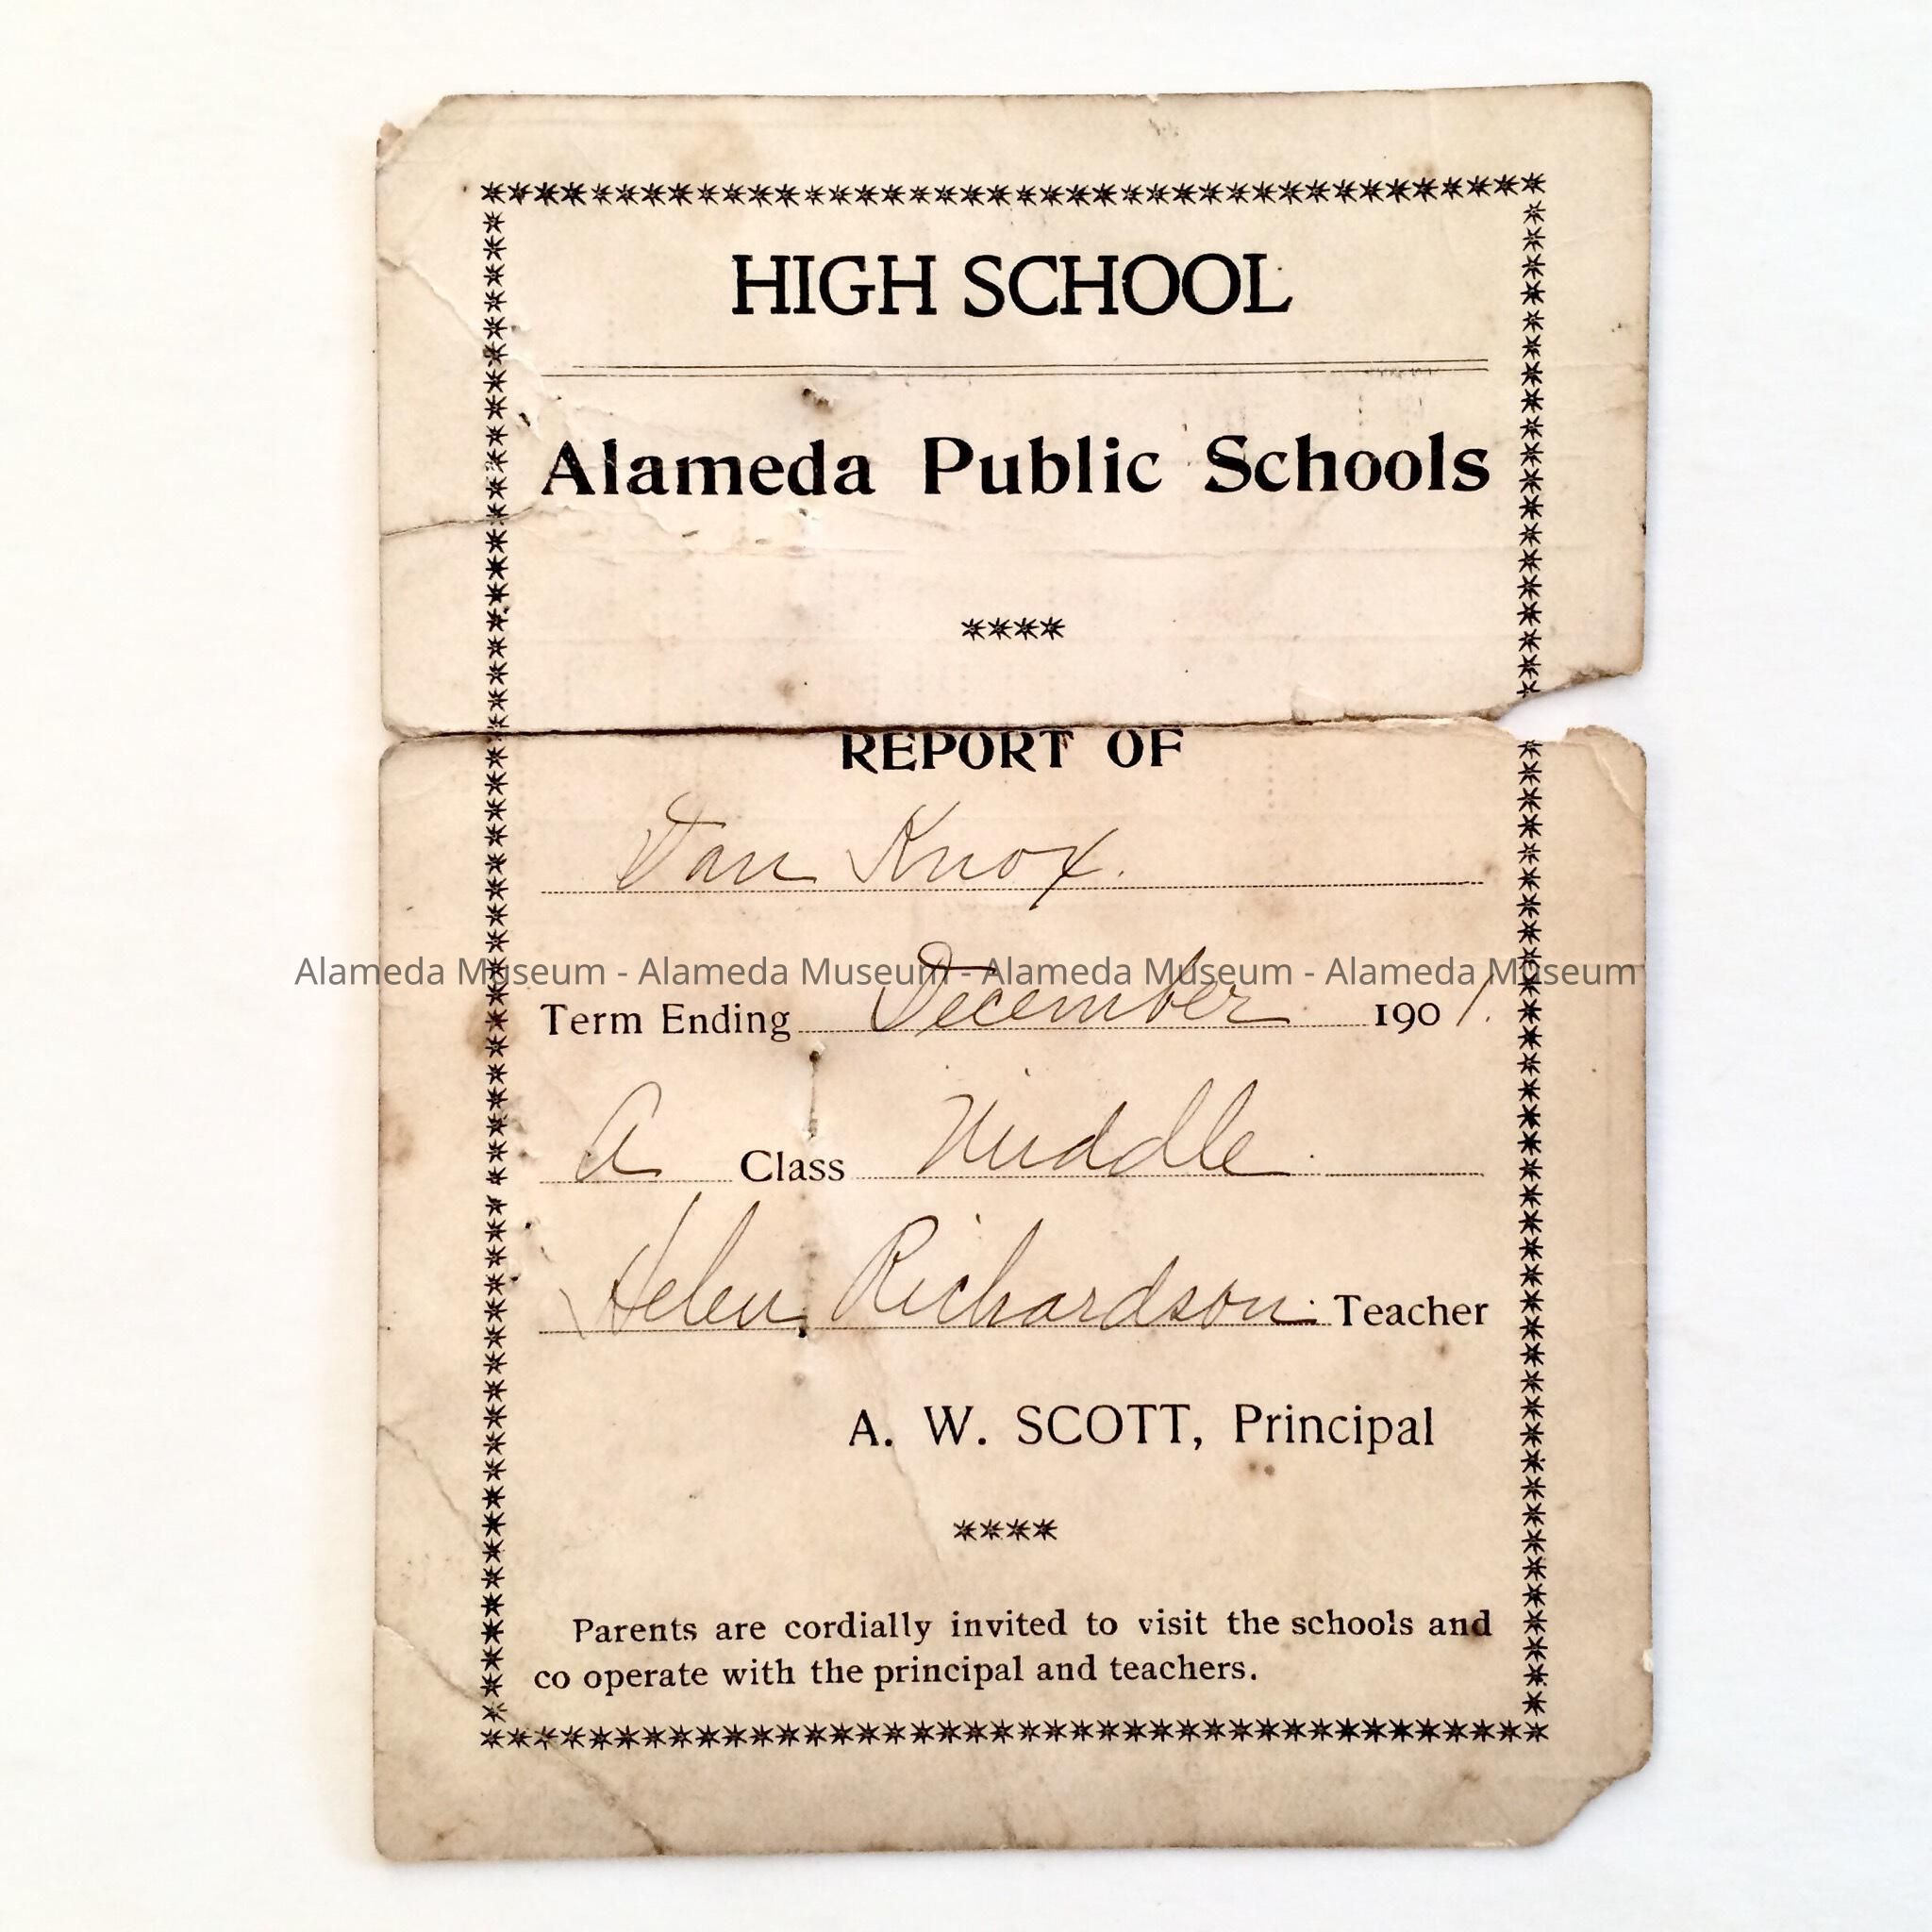 HIGH SCHOOL
Alameda Public Schools
****
REPORT OF
Dan Knox.
Alameda Museum - Alameda Museum - Alameda Museum - Alameda Museum
Term Ending December 1901.
A Class Middle.
Helen Richardson. Teacher
A. W. SCOTT, Principal
****
Parents are cordially invited to visit the schools and
co operate with the principal and teachers.